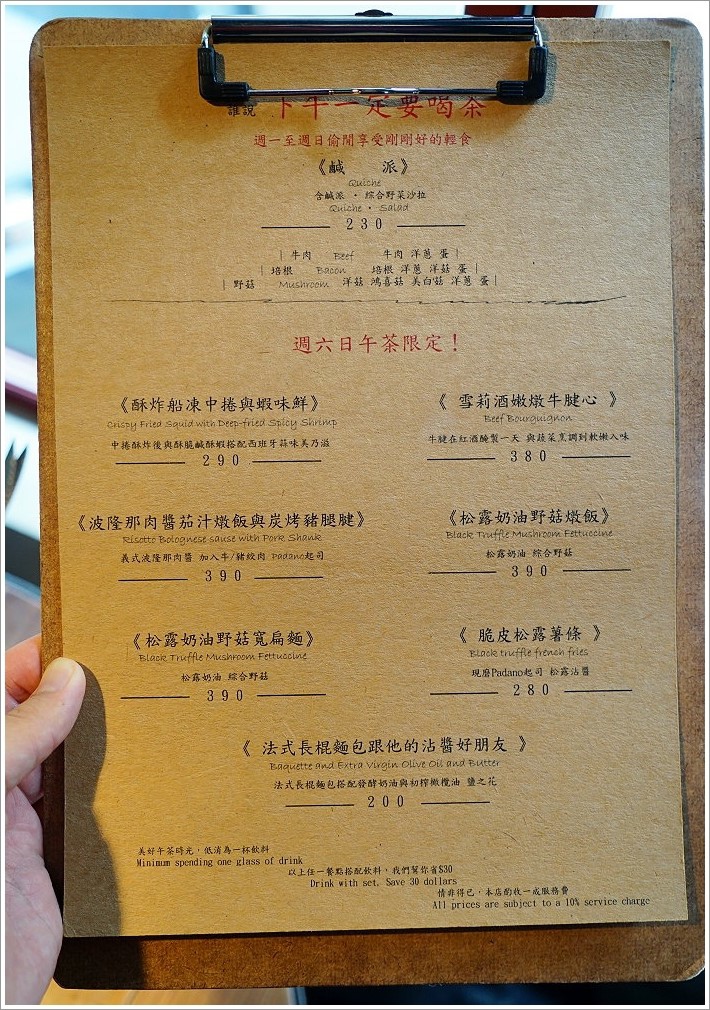 誰說 下午一定要喝茶
週一至週日偷閒享受剛剛好的輕食
《鹹 派》
Quiche
含鹹派 · 綜合野菜沙拉
Quiche · Salad
230
| 牛肉 Beef 牛肉 洋蔥 蛋 |
| 培根 Bacon 培根 洋蔥 洋菇 蛋 |
| 野菇 Mushroom 洋菇 鴻喜菇 美白菇 洋蔥 蛋 |
週六日午茶限定！
《酥炸船凍中捲與蝦味鮮》
Crispy Fried Squid with Deep-fried Spicy Shrimp
中捲酥炸後與酥脆鹹酥蝦搭配西班牙蒜味美乃滋
290
《 雪莉酒嫩燉牛腱心 》
Beef Bourguignon
牛腱在紅酒醃製一天 與蔬菜烹調到軟嫩入味
380
《波隆那肉醬茄汁燉飯與炭烤豬腿腱》
Risotto Bolognese sause with Pork Shank
義式波隆那肉醬 加入牛/豬絞肉 Padano起司
390
《松露奶油野菇燉飯》
Black Truffle Mushroom Fettuccine
松露奶油 綜合野菇
390
《松露奶油野菇寬扁麵》
Black Truffle Mushroom Fettuccine
松露奶油 綜合野菇
390
《 脆皮松露薯條 》
Black truffle french fries
現磨Padano起司 松露沾醬
280
《 法式長棍麵包跟他的沾醬好朋友 》
Baquette and Extra Virgin Olive Oil and Butter
法式長棍麵包搭配發酵奶油與初榨橄欖油 鹽之花
200
美好午茶時光，低消為一杯飲料
Minimum spending one glass of drink
以上任一餐點搭配飲料，我們幫你省$30
Drink with set, Save 30 dollars
情非得已，本店酌收一成服務費
All prices are subject to a 10% service charge